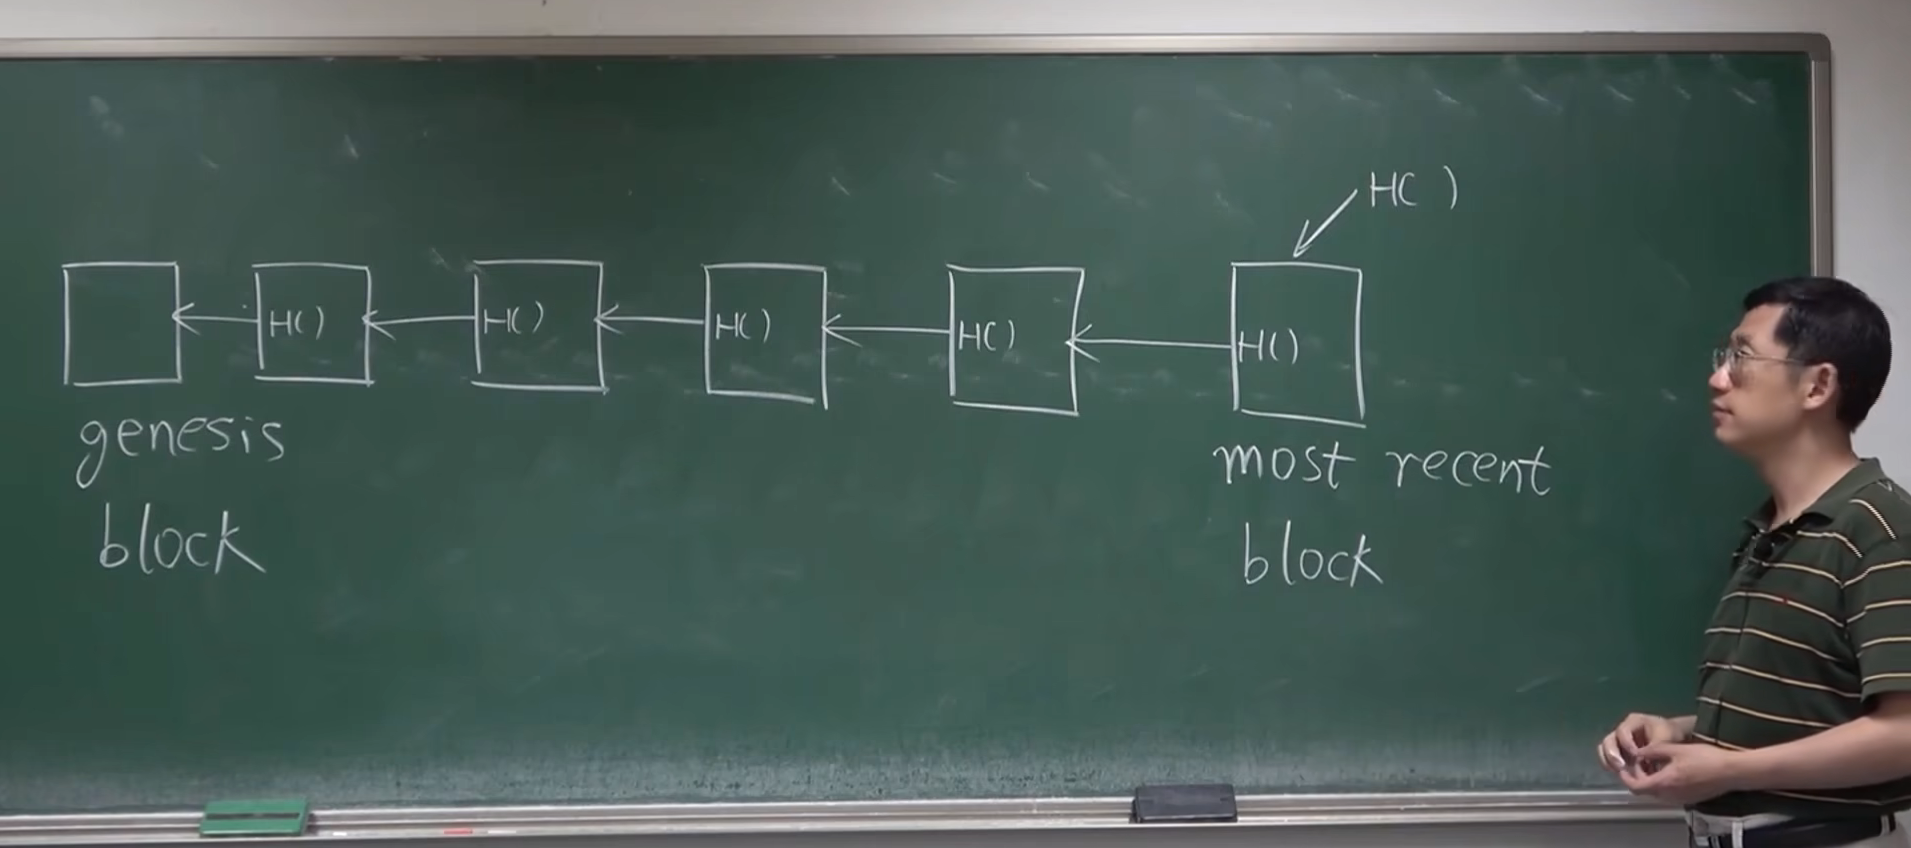 H( )
H() H() H() H() H()
genesis
block
most recent
block